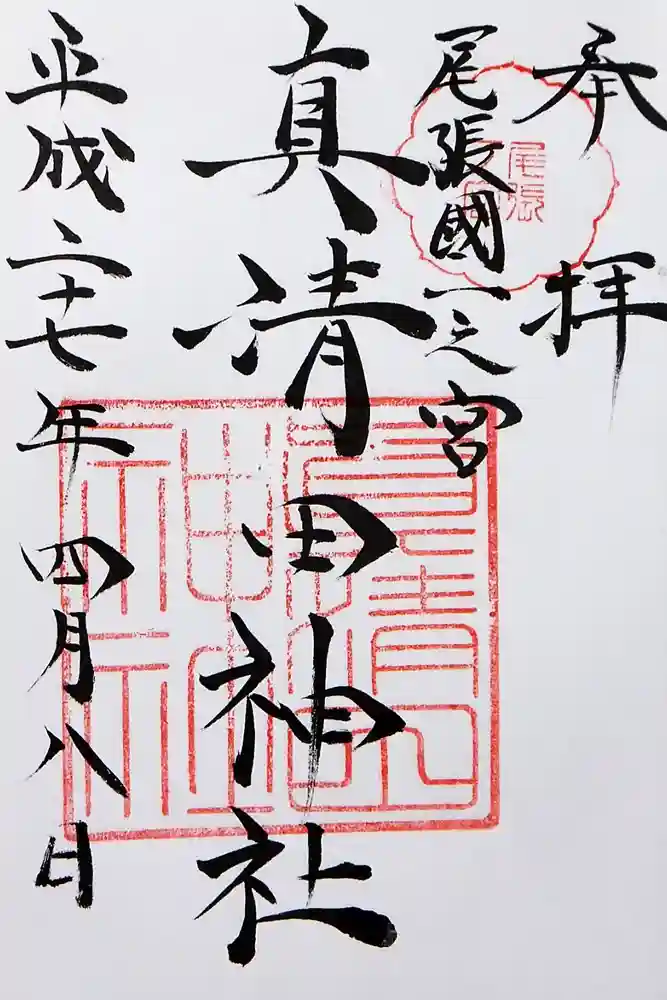 奉拝
尾張國一之宮
真清田神社
平成二十七年四月八日
尾張